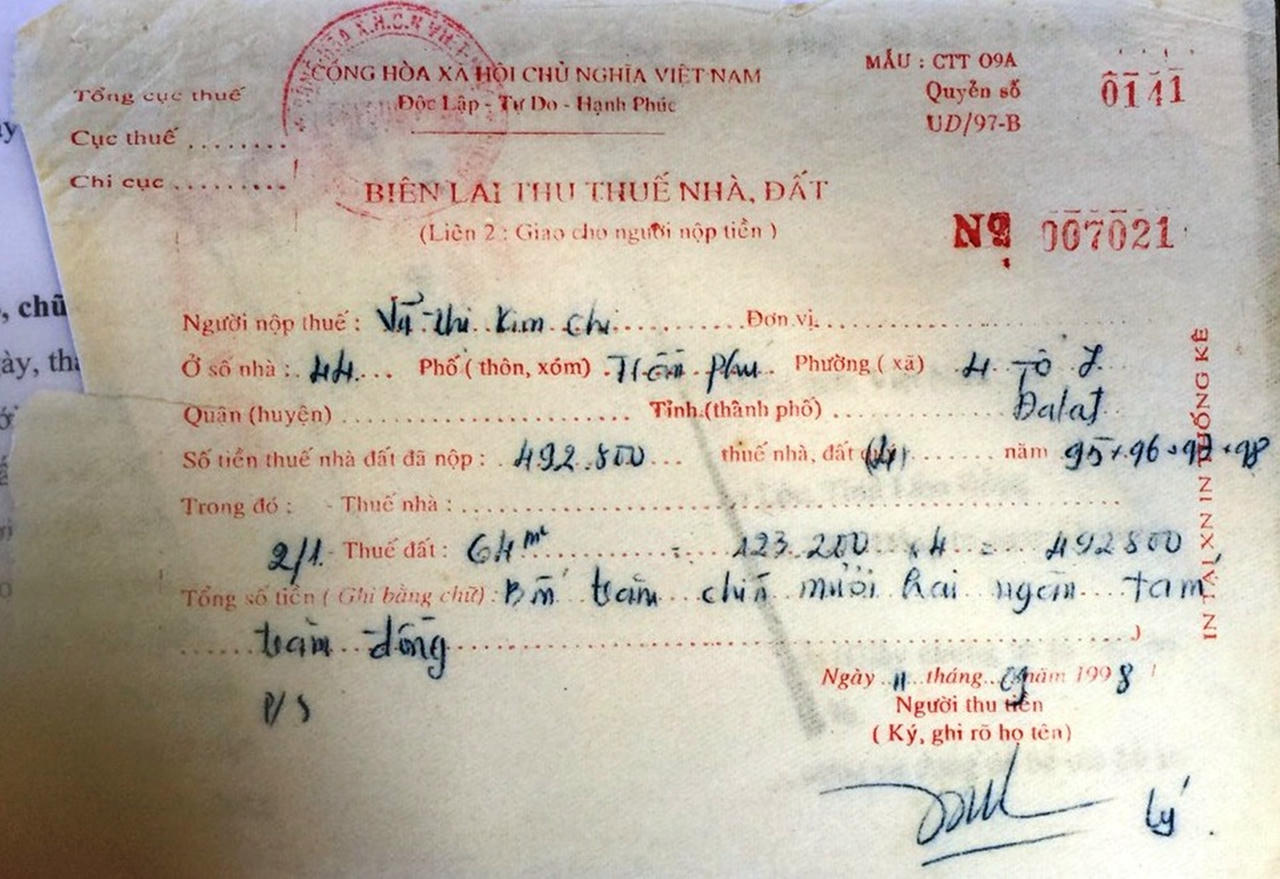 Tổng cục thuế
Cục thuế ........
Chi cục ..........
CỘNG HÒA XÃ HỘI CHỦ NGHĨA VIỆT NAM
Độc Lập - Tự Do - Hạnh Phúc
MẪU : CTT 09A
Quyển số
UD/97-B
0141
BIÊN LAI THU THUẾ NHÀ, ĐẤT
(Liên 2 : Giao cho người nộp tiền )
Nº 007021
Người nộp thuế : Vũ Thị Kim Chi Đơn vị
Ở số nhà : 44 Phố ( thôn, xóm) Trần Phú Phường ( xã) 4 Tổ 7
Quận (huyện) Tỉnh (thành phố) Đalạt
Số tiền thuế nhà đất đã nộp : 492.800 thuế nhà, đất năm 95+96+97+98
Trong đó : - Thuế nhà :
2/1 - Thuế đất : 64 m² : 123.200 x 4 = 492800
Tổng số tiền ( Ghi bằng chữ) : Bốn trăm chín mươi hai ngàn tám
trăm đồng
P/S
Ngày 11 tháng 09 năm 1998
Người thu tiền
( Ký, ghi rõ họ tên)
Lý
IN TẠI XN IN THỐNG KÊ